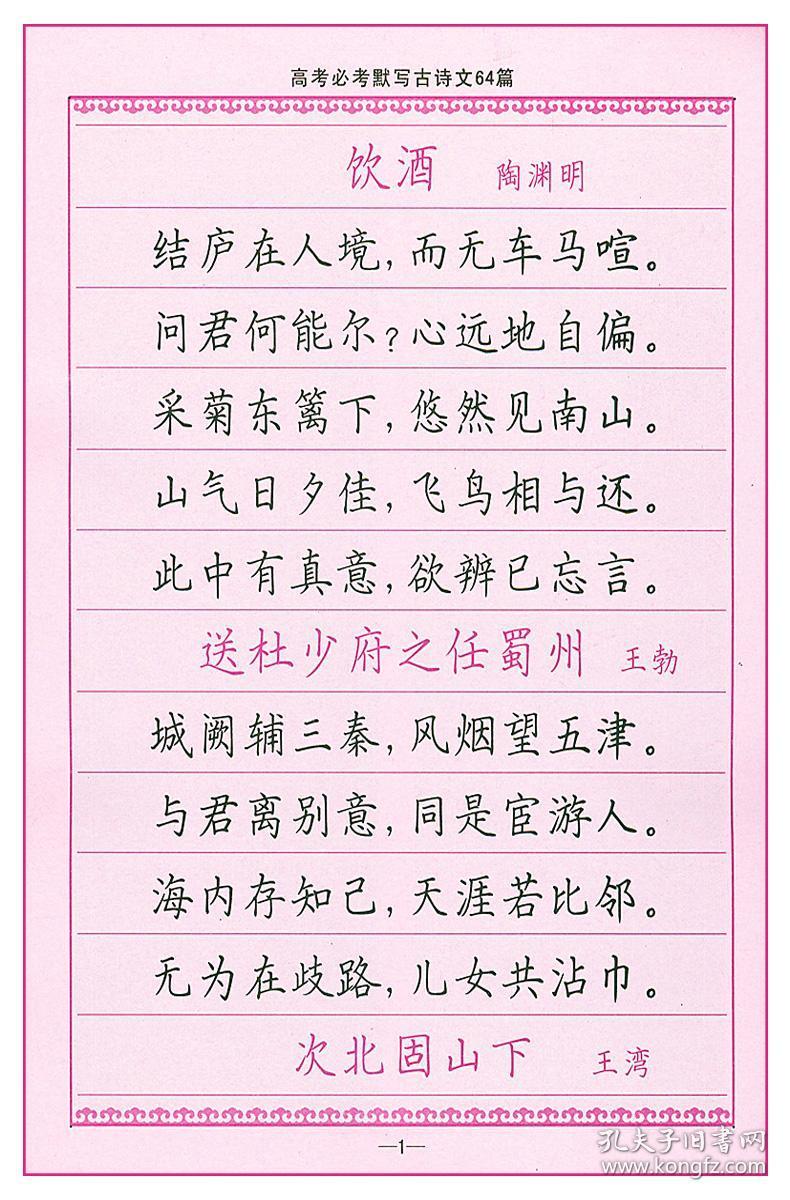 高考必考默写古诗文64篇
饮酒 陶渊明
结庐在人境,而无车马喧。
问君何能尔?心远地自偏。
采菊东篱下,悠然见南山。
山气日夕佳,飞鸟相与还。
此中有真意,欲辨已忘言。
送杜少府之任蜀州 王勃
城阙辅三秦,风烟望五津。
与君离别意,同是宦游人。
海内存知己,天涯若比邻。
无为在歧路,儿女共沾巾。
次北固山下 王湾
—1—
孔夫子旧书网
www.kongfz.com